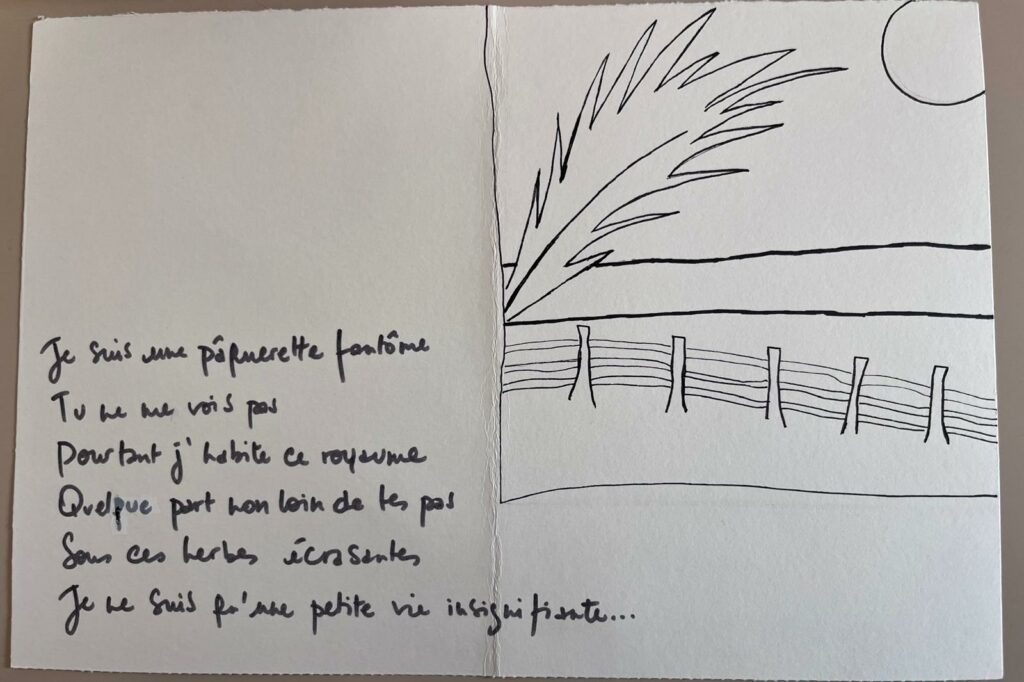 Je suis une pâquerette fantôme
Tu ne me vois pas
Pourtant j'habite ce royaume
Quelque part non loin de tes pas
Sous ces herbes écrasantes
Je ne suis qu'une petite vie insignifiante...